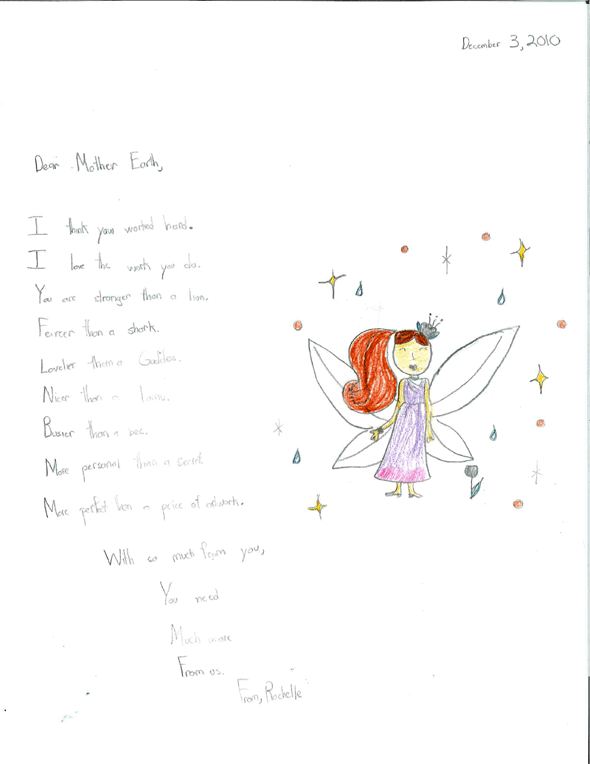 December 3, 2010
Dear Mother Earth,
I think you worked hard.
I love the work you do.
You are stronger than a lion.
Feircer than a shark.
Lovelier than a Goddess.
Nicer than a
Busier than a bee.
More personal than a secret.
More perfect than a peice of artwork.
With so much from you,
You need
Much more
From us.
From, Rachelle